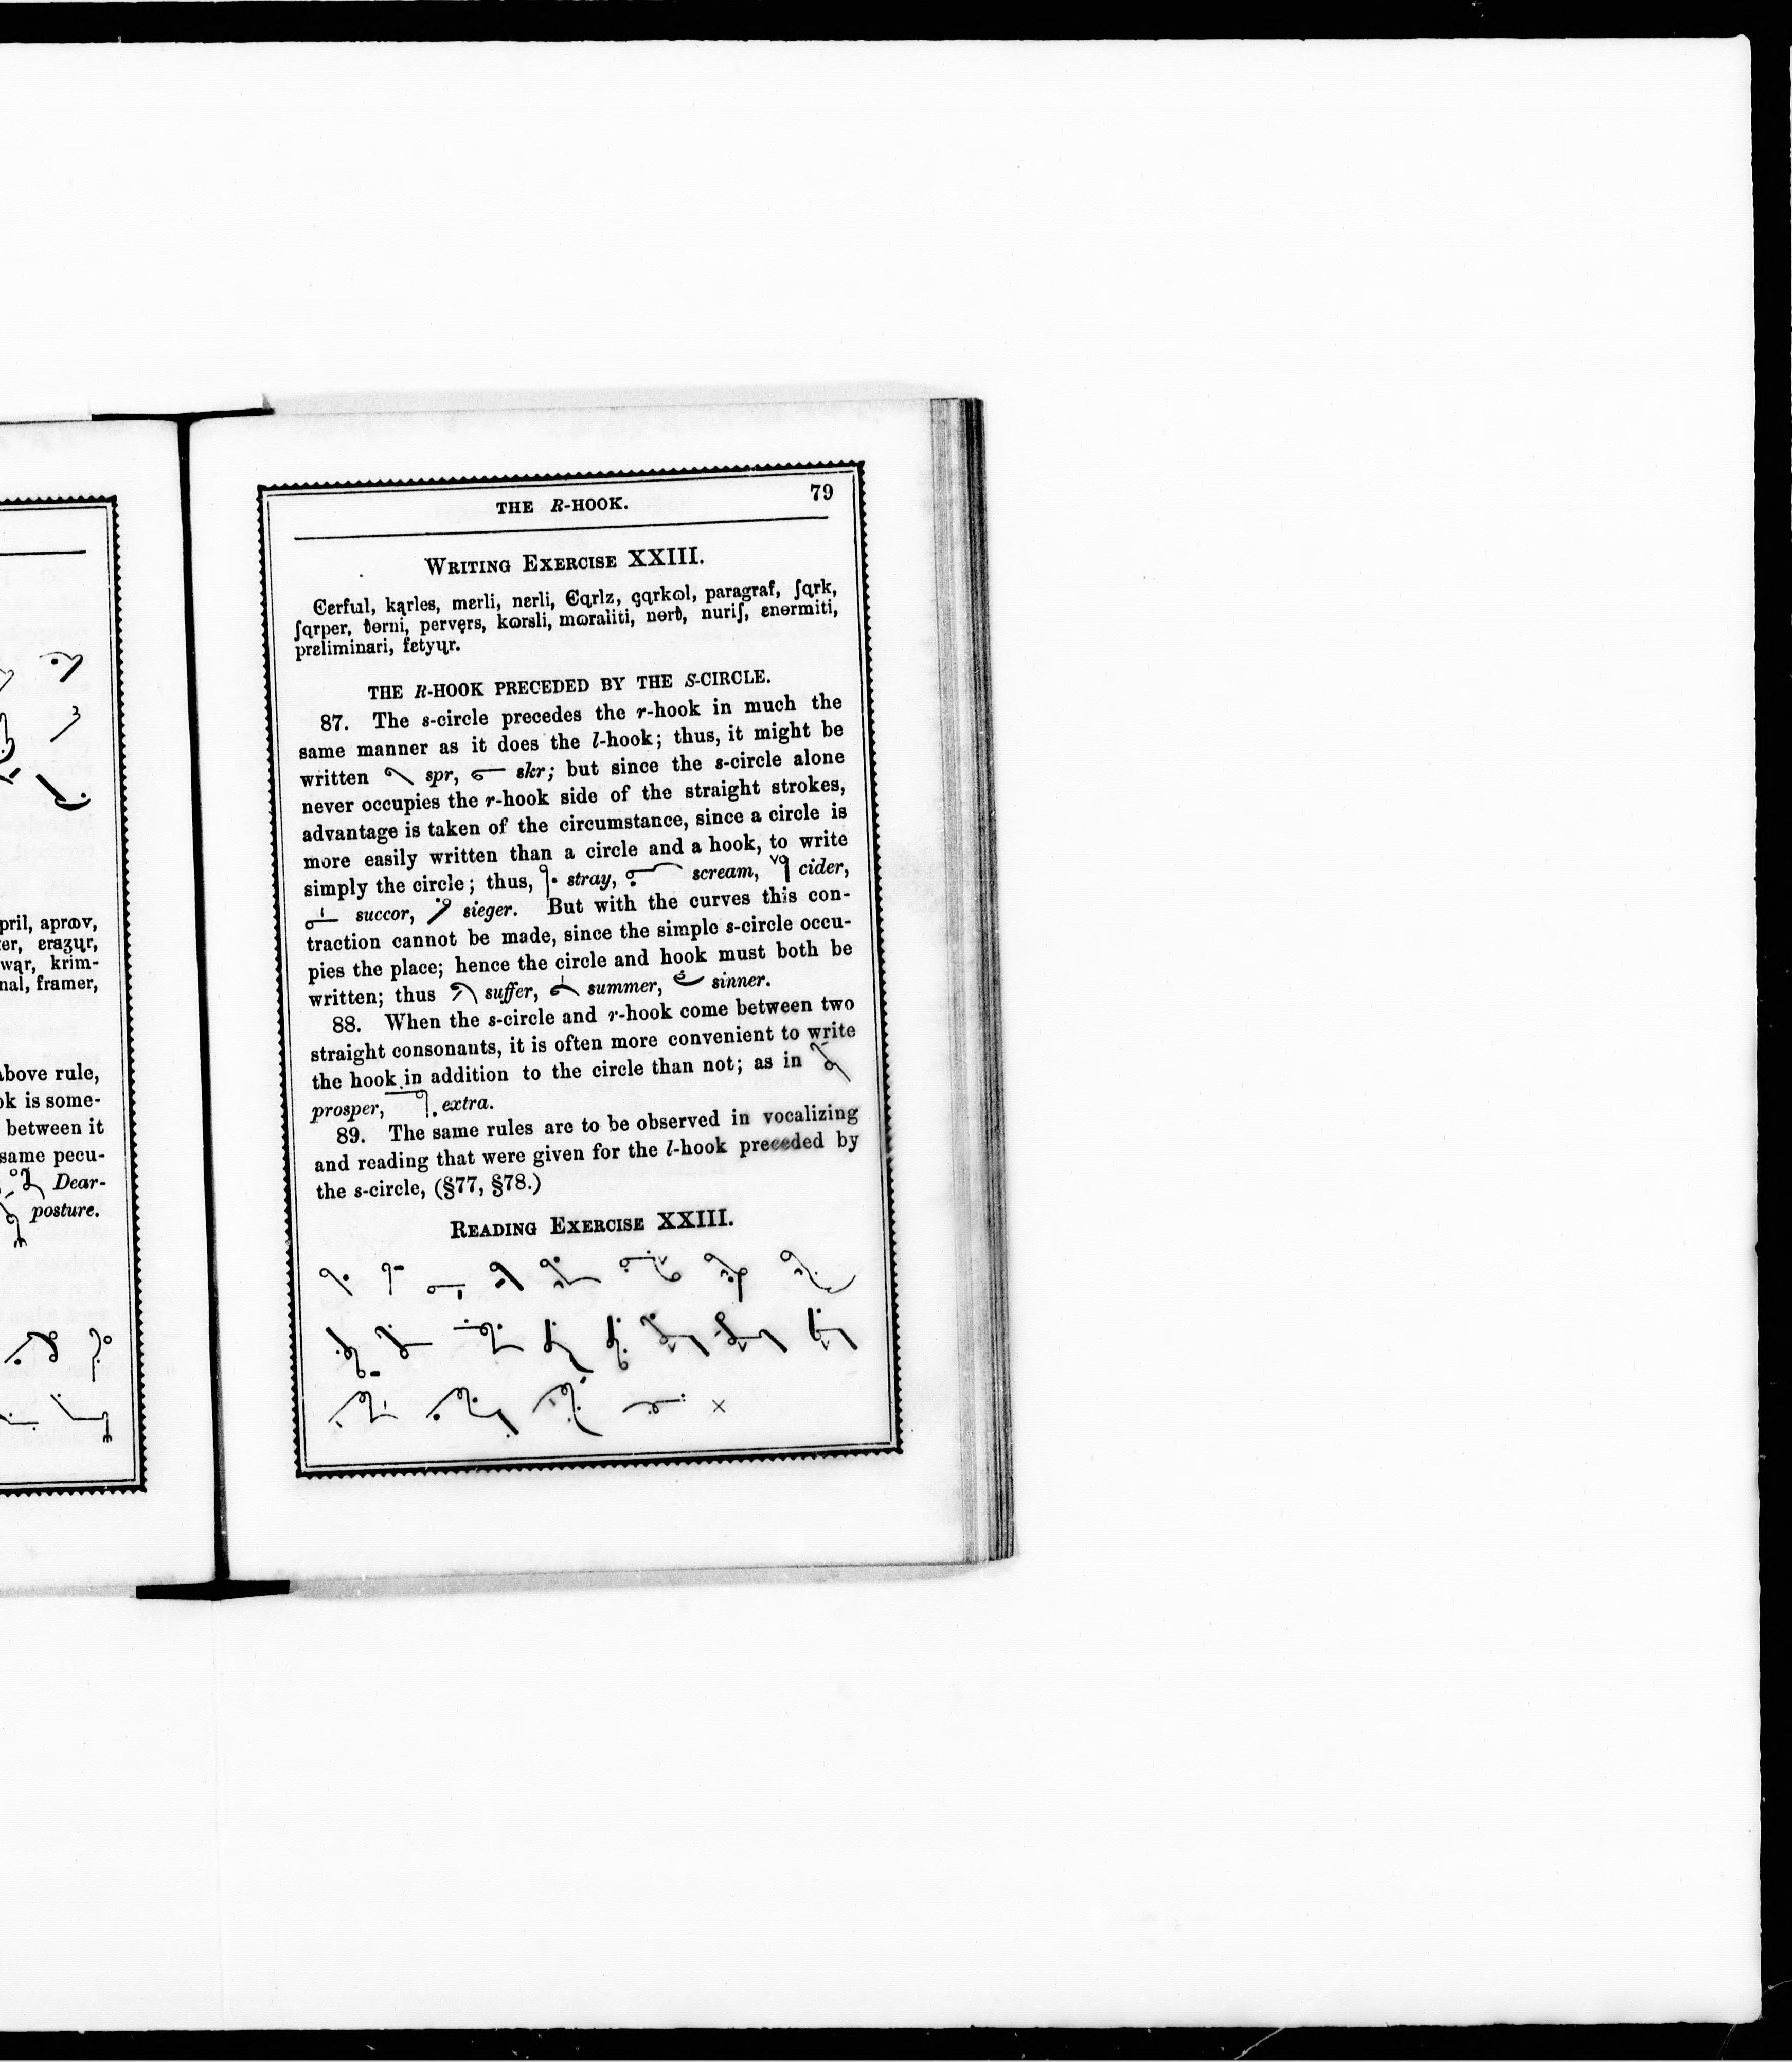 pril, aprɷv,
er, ɛraʒɥr,
wąr, krim-
nal, framer,
above rule,
ok is some-
between it
same pecu-
Dear-
posture.
THE R-HOOK. 79
WRITING EXERCISE XXIII.
Єerful, kąrles, mɛrli, nɛrli, Єɋrlz, çɋrkɷl, paragraf, ʃɋrk,
ʃɋrper, ŧɵrni, pervęrs, kɷrsli, mɷraliti, nɵrŧ, nuriʃ, ɛnɵrmiti,
preliminari, fɛtyɥr.
THE R-HOOK PRECEDED BY THE S-CIRCLE.
87. The s-circle precedes the r-hook in much the
same manner as it does the l-hook; thus, it might be
written spr, skr; but since the s-circle alone
never occupies the r-hook side of the straight strokes,
advantage is taken of the circumstance, since a circle is
more easily written than a circle and a hook, to write
simply the circle; thus, stray, scream, cider,
succor, sieger. But with the curves this con-
traction cannot be made, since the simple s-circle occu-
pies the place; hence the circle and hook must both be
written; thus suffer, summer, sinner.
88. When the s-circle and r-hook come between two
straight consonants, it is often more convenient to write
the hook in addition to the circle than not; as in
prosper, extra.
89. The same rules are to be observed in vocalizing
and reading that were given for the l-hook preceded by
the s-circle, (§77, §78.)
READING EXERCISE XXIII.